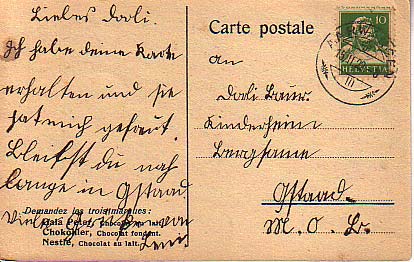 Liebes Dorli.
Ich habe deine Karte
erhalten und sie
hat mich gefreut.
Bleibst du noch
lange in Gstaad
Viele von
Leni
Demandez les trois marques:
Gala Peter, Chocolat au lait.
Chokohler, Chocolat fondant.
Nestlé, Chocolat au lait.
Carte postale
10
HELVETIA
an
Dorli
Kinderheim
Bergsonne
Gstaad.
M. O. B.